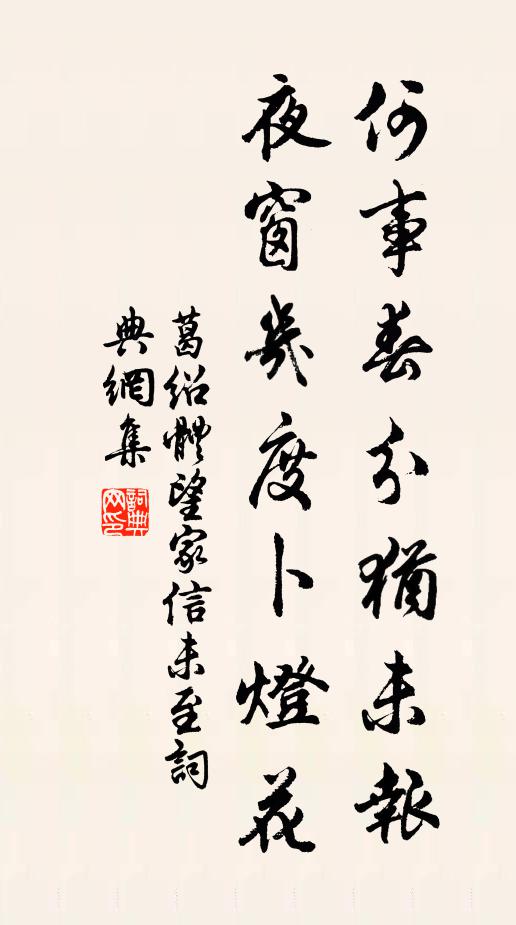 何事春分猶未報
夜窗幾度卜燈花
葛紹體望家信未至詞
典網集
詞典
網印